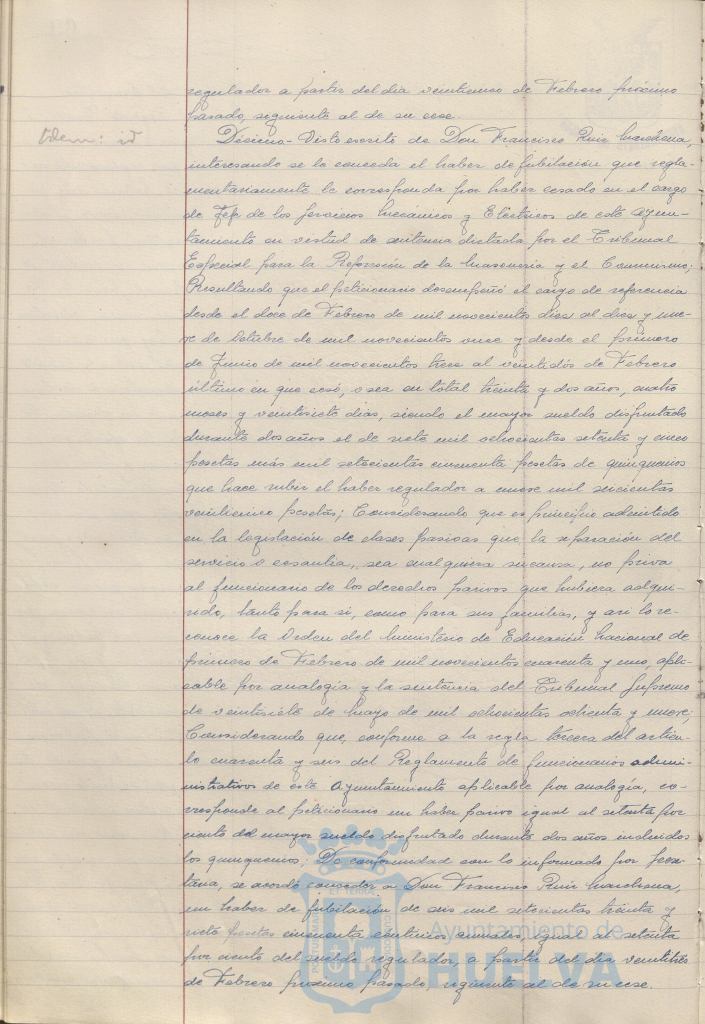 regulador a partir del dia veintiuno de Febrero próximo
pasado, siguiente al de su cese.
Idem: id
Décimo- Visto escrito de Don Francisco Ruiz Marchena,
interesando se le conceda el haber de jubilación que regla-
mentariamente le corresponda por haber cesado en el cargo
de Jefe de los Servicios Mecánicos y Eléctricos de este Ayun-
tamiento en virtud de sentencia dictada por el Tribunal
Especial para la Represión de la Masonería y el Comunismo;
Resultando que el peticionario desempeñó el cargo de referencia
desde el doce de Febrero de mil novecientos diez al diez y nue-
ve de Octubre de mil novecientos once y desde el primero
de Junio de mil novecientos trece al veintidós de Febrero
último en que cesó, o sea en total treinta y dos años, cuatro
meses y veintisiete dias, siendo el mayor sueldo disfrutado
durante dos años el de siete mil ochocientas setenta y cinco
pesetas más mil setecientas cincuenta pesetas de quinquenios
que hace subir el haber regulador a nueve mil seiscientas
veinticinco pesetas; Considerando que es principio admitido
en la legislación de clases pasivas que la separación del
servicio o cesantia, sea cualquiera su causa, no priva
al funcionario de los derechos pasivos que hubiera adqui-
rido, tanto para si, como para sus familias, y asi lo re-
conoce la Orden del Ministerio de Educación Nacional de
primero de Febrero de mil novecientos cuarenta y uno, apli-
cable por analogia y la sentencia del Tribunal Supremo
de veintisiete de Mayo de mil ochocientos ochenta y nueve;
Considerando que, conforme a la regla tercera del articu-
lo cuarenta y seis del Reglamento de funcionarios admi-
nistrativos de este Ayuntamiento aplicable por analogía, co-
rresponde al peticionario un haber pasivo igual al setenta por
ciento del mayor sueldo disfrutado durante dos años incluidos
los quinquenios; De conformidad con lo informado por Secre-
taria, se acordó conceder a Don Francisco Ruiz Marchena,
un haber de jubilación de seis mil setecientas treinta y
siete pesetas cincuenta céntimos anuales, igual al setenta
por ciento del sueldo regulador a partir del dia veintitres
de Febrero próximo pasado, siguiente al de su cese.
Ayuntamiento de
HUELVA